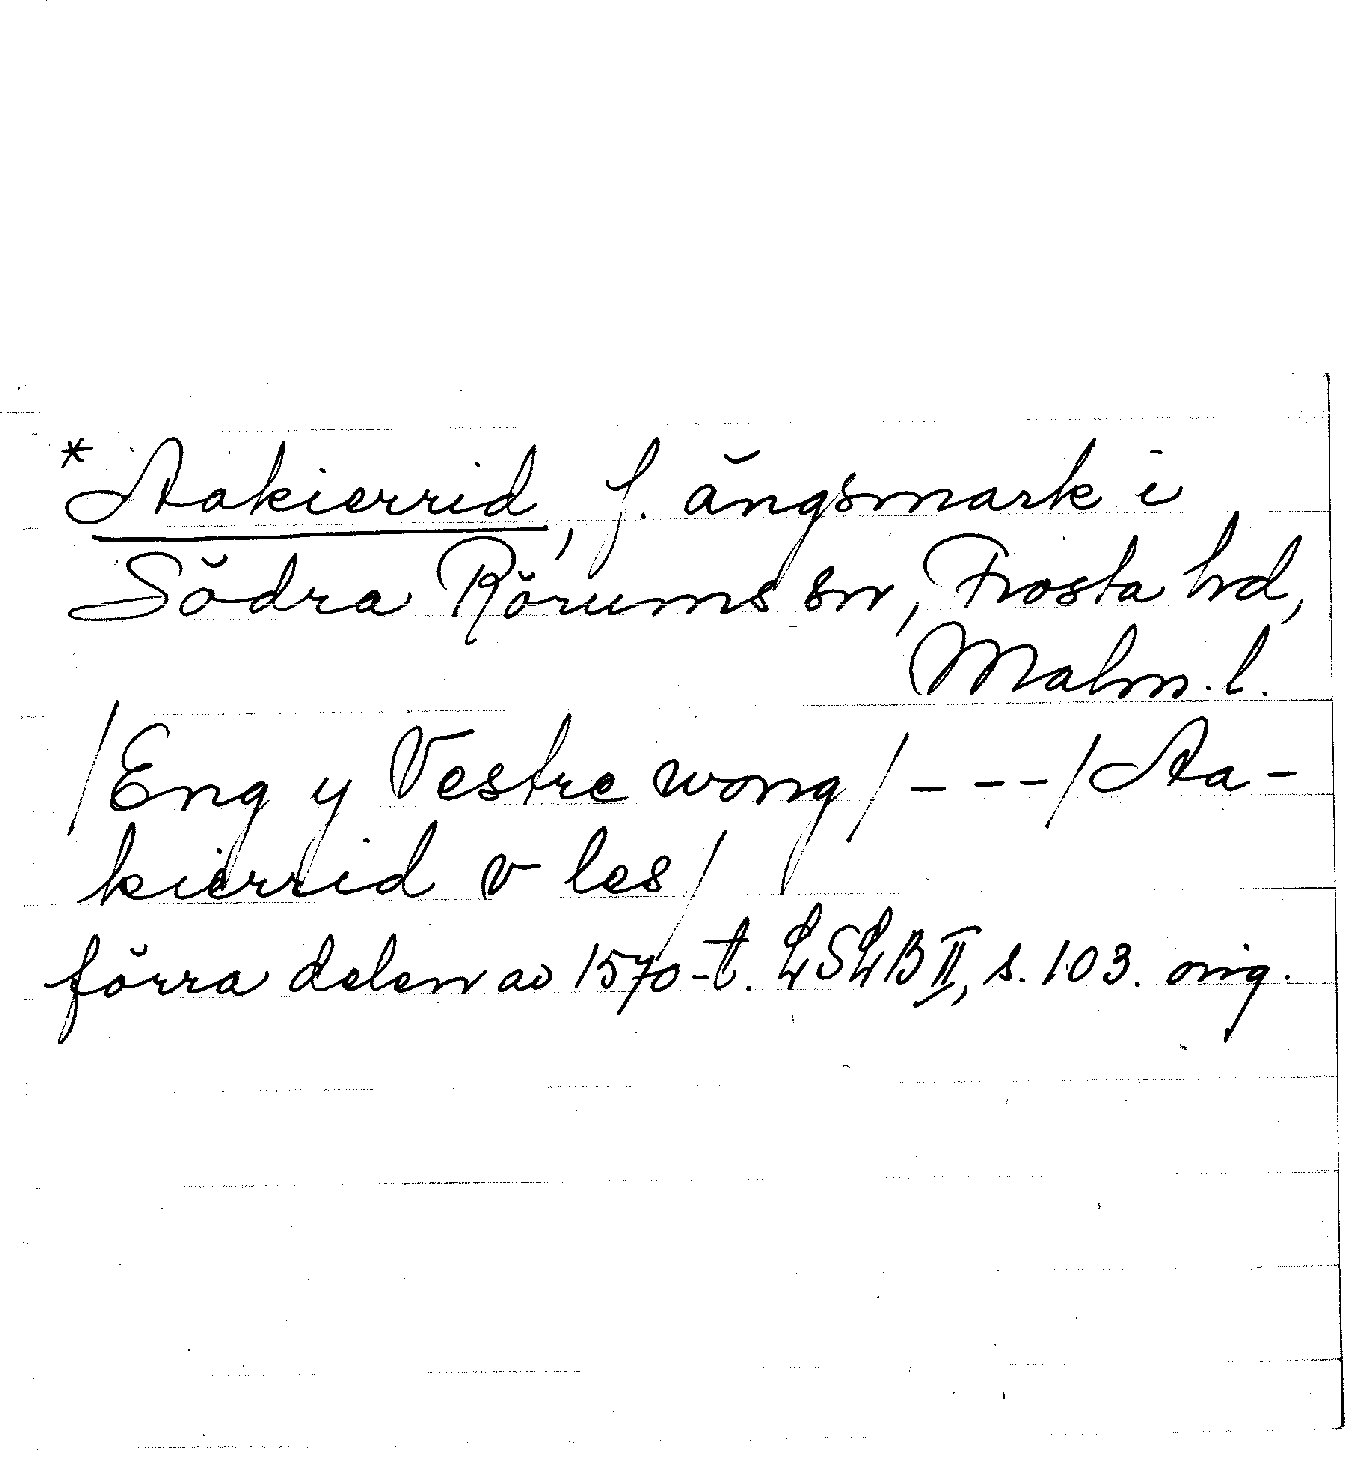 * Aakierrid, f. ängsmark i
Södra Rörums sn, Frosta hd,
Malm. l.
/Eng y Vestre wong/ - - - / Aa-
kierrid v les/
förra delen av 1570-t. LSLB II, s. 103. orig.